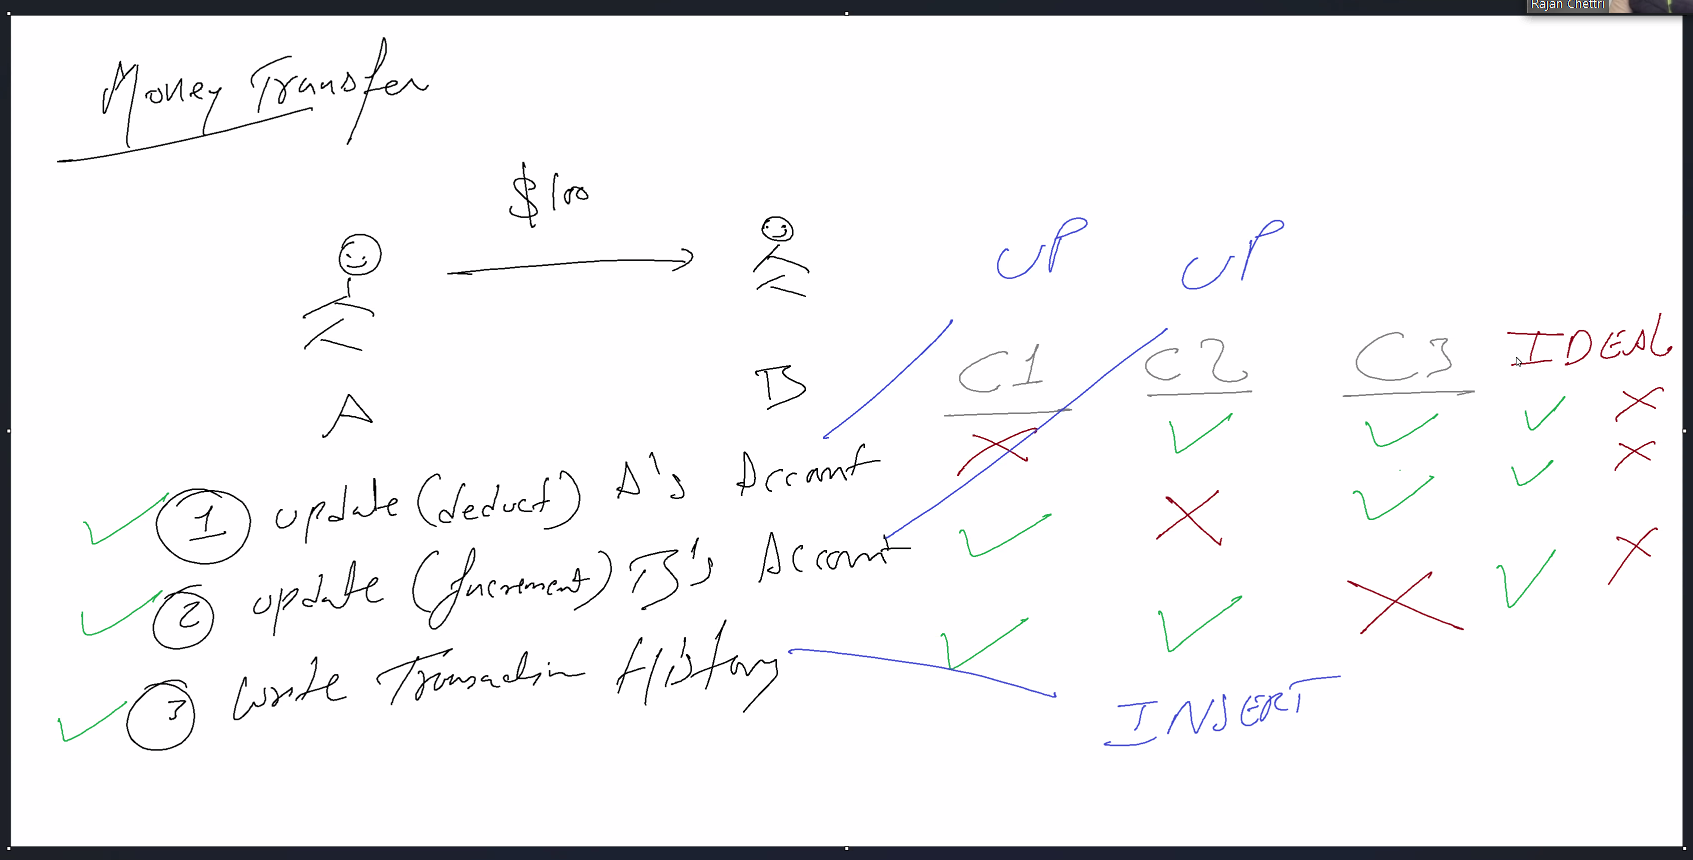 Rajan Chettri
Money Transfer
$100
UP UP
C1 C2 C3 IDEAL
A B
1 update (deduct) A's Account
2 update (Increment) B's Account
3 write Transaction History
INSERT